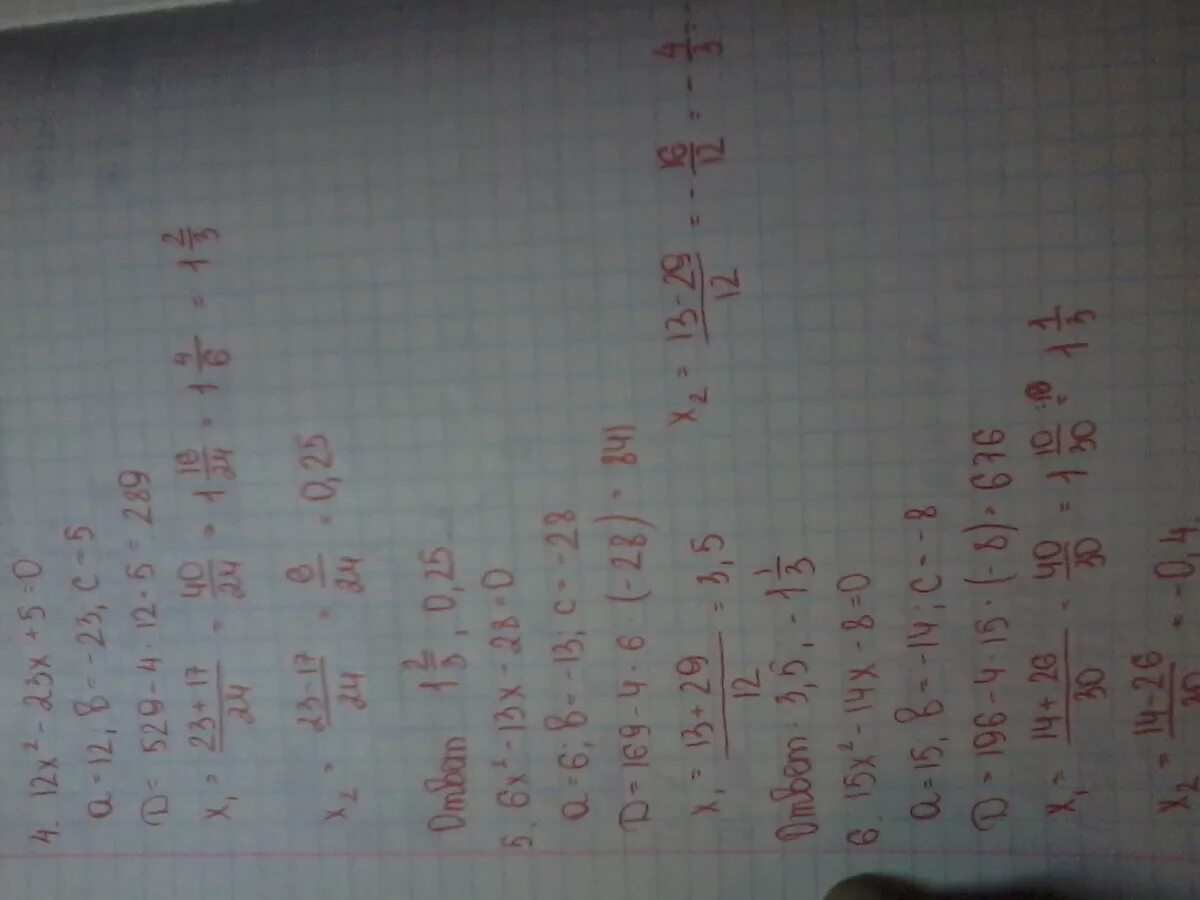 4. 12x² - 23x + 5 = 0
a = 12; b = -23; c = 5
D = 529 - 4 · 12 · 5 = 289
x₁ = (23 + 17)/24 = 40/24 = 1 16/24 = 1 4/6 = 1 2/3
x₂ = (23 - 17)/24 = 6/24 = 0,25
Ответ 1 2/3; 0,25
5. 6x² - 13x - 28 = 0
a = 6; b = -13; c = -28
D = 169 - 4 · 6 · (-28) = 841
x₁ = (13 + 29)/12 = 3,5 x₂ = (13 - 29)/12 = - 16/12 = - 4/3 =
Ответ: 3,5; -1 1/3
6. 15x² - 14x - 8 = 0
a = 15; b = -14; c = -8
D = 196 - 4 · 15 · (-8) = 676
x₁ = (14 + 26)/30 = 40/30 = 1 10/30 = 1 1/3
x₂ = (14 - 26)/30 = -0,4